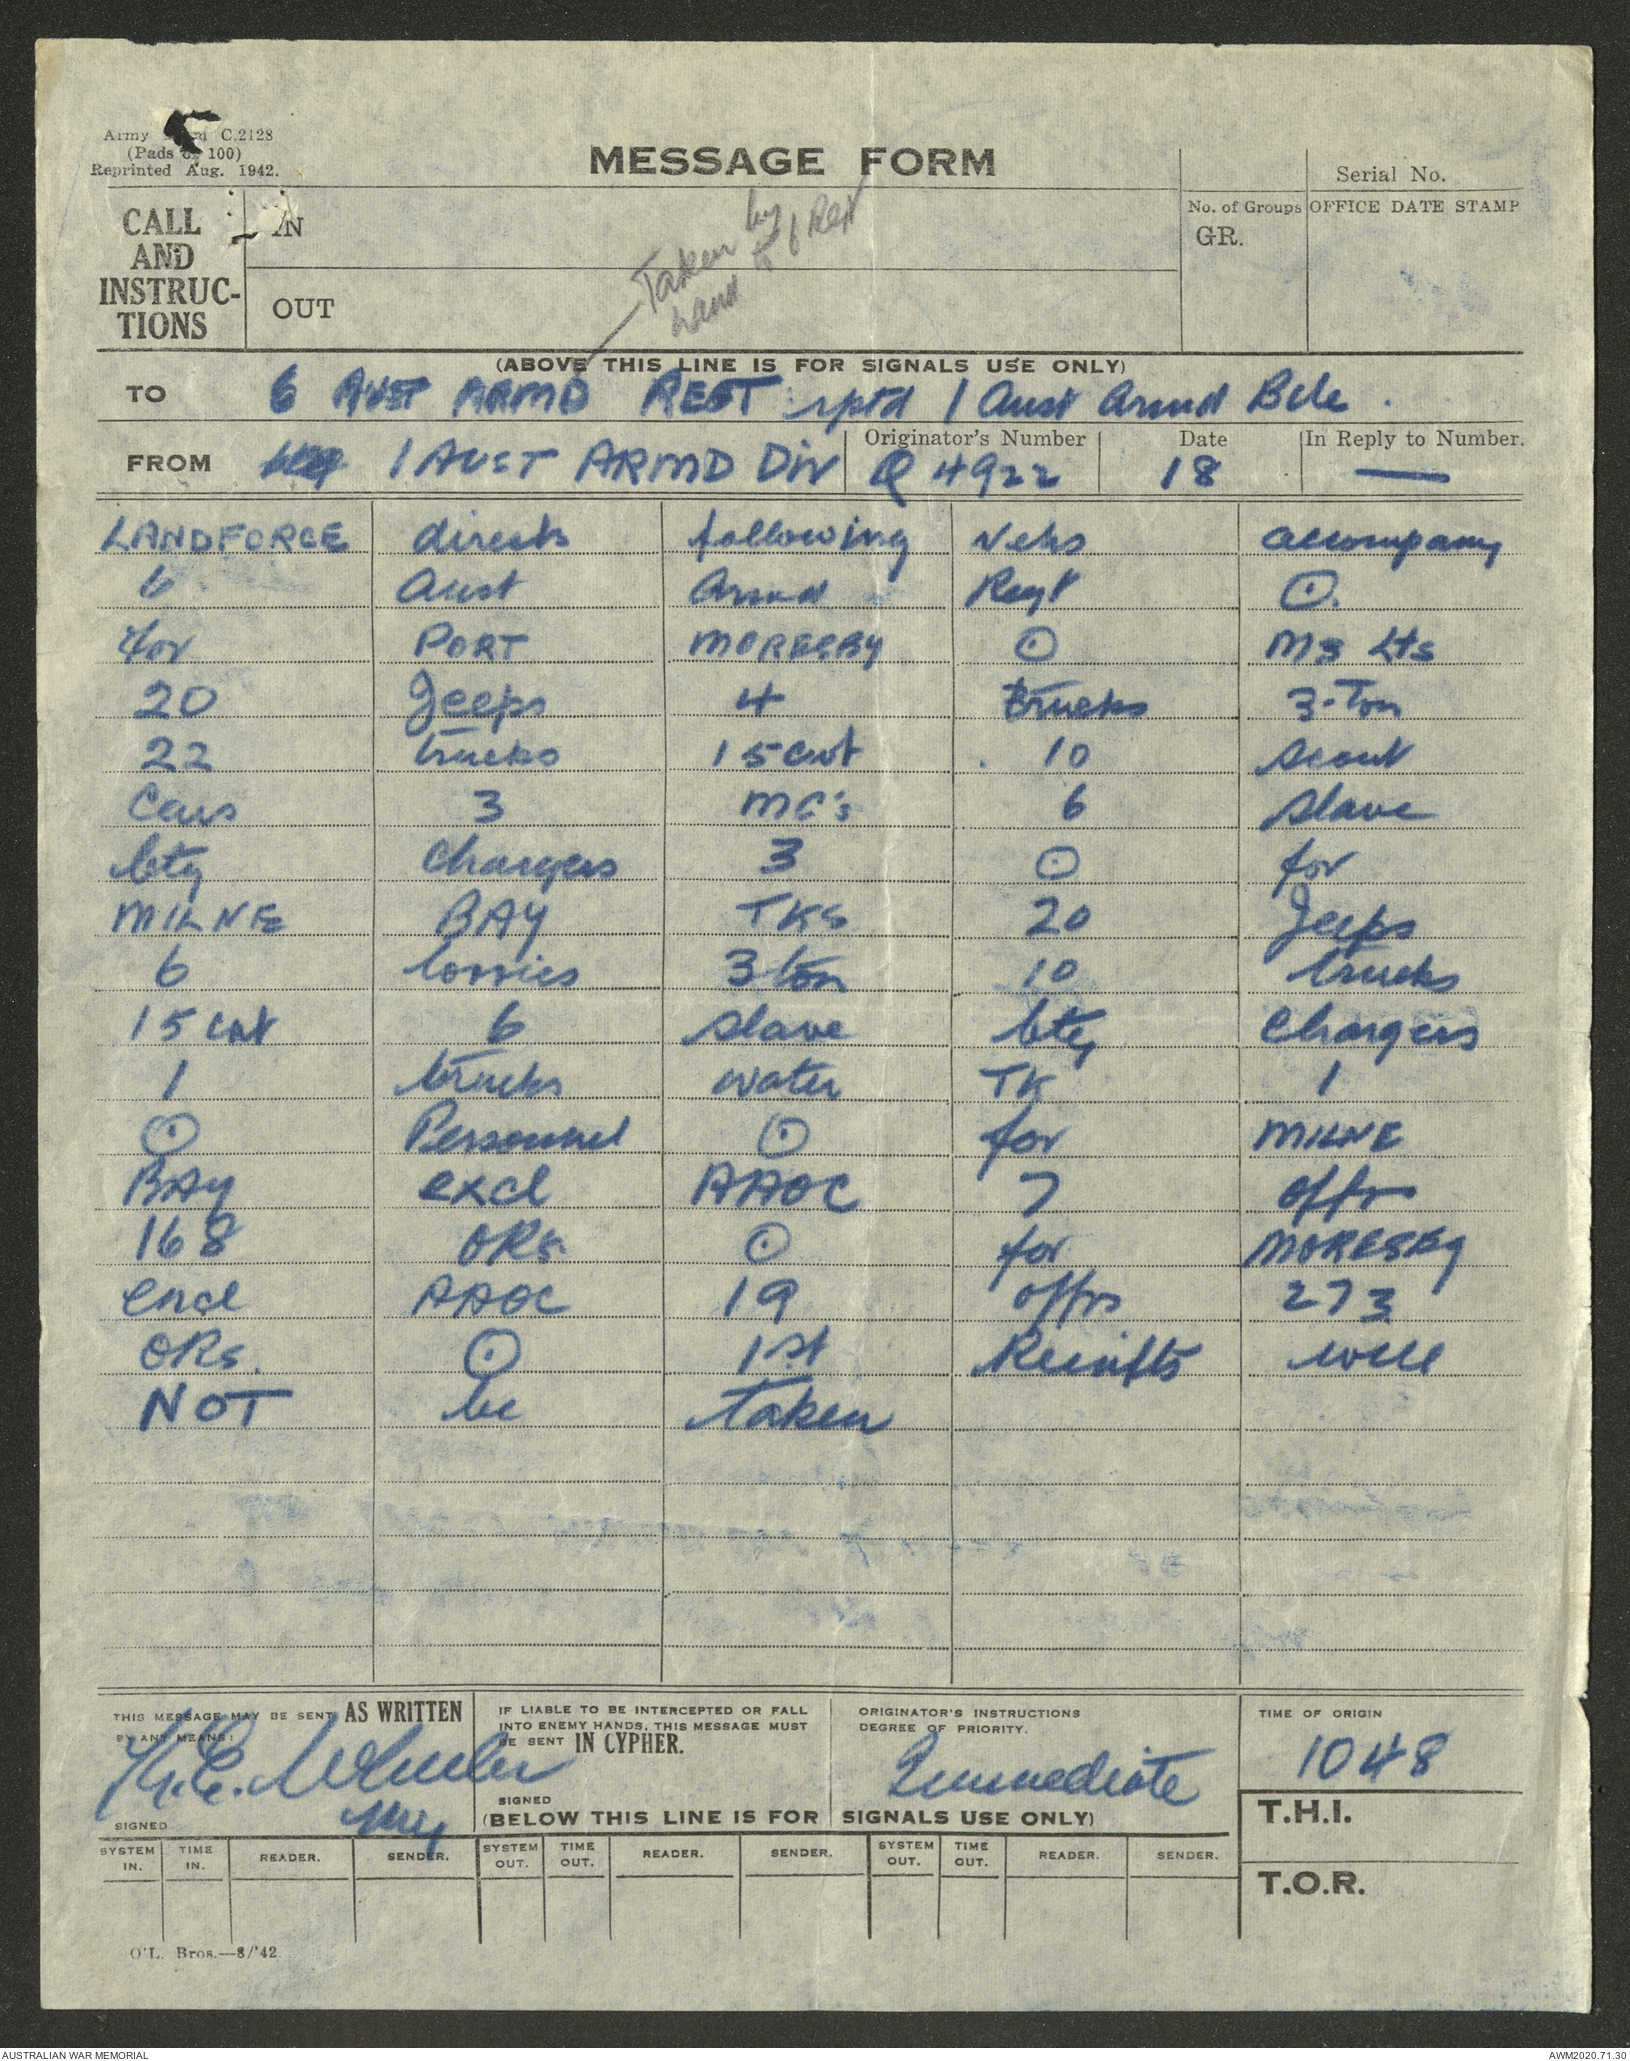 Army Form C.2128
(Pads of 100)
Reprinted Aug. 1942.
MESSAGE FORM
Serial No.
CALL
AND
INSTRUC-
TIONS
IN
OUT
No. of Groups
GR.
OFFICE DATE STAMP
Taken by
hand to 6 Regt
(ABOVE THIS LINE IS FOR SIGNALS USE ONLY)
TO 6 AUST ARMD REGT rptd 1 Aust Armd Bde.
FROM 1 AUST ARMD DIV Originator's Number Q 4922 Date 18 In Reply to Number. —
LANDFORCE directs following vehs accompany
6 Aust Armd Regt ⊙
for PORT MORESBY ⊙ M3 Lts
20 Jeeps 4 trucks 3-Ton
22 trucks 15cwt 10 scout
Cars 3 MC's 6 slave
bty chargers 3 ⊙ for
MILNE BAY TKS 20 Jeeps
6 lorries 3 ton 10 trucks
15 cwt 6 slave bty Chargers
1 trucks water TK 1
⊙ Personnel ⊙ for MILNE
BAY excl AAOC 7 offrs
168 ORs ⊙ for MORESBY
encl AAOC 19 offrs 273
ORs. ⊙ 1st Reinfts will
NOT be taken
THIS MESSAGE MAY BE SENT AS WRITTEN
BY ANY MEANS:
Wheeler
SIGNED
IF LIABLE TO BE INTERCEPTED OR FALL
INTO ENEMY HANDS, THIS MESSAGE MUST
BE SENT IN CYPHER.
SIGNED
ORIGINATOR'S INSTRUCTIONS
DEGREE OF PRIORITY.
Immediate
TIME OF ORIGIN
1048
(BELOW THIS LINE IS FOR SIGNALS USE ONLY)
T.H.I.
T.O.R.
SYSTEM IN. TIME IN. READER. SENDER. SYSTEM OUT. TIME OUT. READER. SENDER. SYSTEM OUT. TIME OUT. READER. SENDER.
O'L. Bros.—8/'42
AUSTRALIAN WAR MEMORIAL
AWM2020.71.30